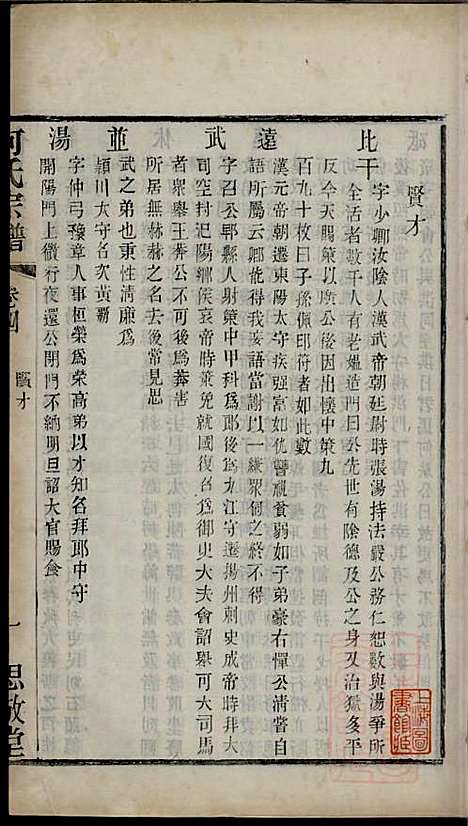 賢才
比干
字少卿汝陰人漢武帝朝廷尉時張湯持法嚴公務仁恕數與湯爭所
全活者數千人有老嫗造門曰公先世有陰德及公之身又治獄多平
反今天賜策以廣公後因出懷中策九
百九十枚曰子孫佩印符者如此數
遠
漢元帝朝遷東陽太守疾强富如仇讐視貧弱如子弟豪右憚公清嘗自
語所屬云卿能我妄語當謝以一縑眾伺之終不得
武
字君公郫縣人射策中甲科爲郎後爲九江守遷揚州刺史成帝時拜
司空封汜陽鄉侯哀帝時策免就國復召爲御史大夫會詔舉可大司馬
者眾舉王莽公不可後爲莽害
所居無赫赫之名去後常見思
並
武之弟也秉性清廉爲
潁川大守名次黃霸
湯
字仲弓豫章人事桓榮爲榮高弟以才知名拜郎中守
開陽門上微行夜還公閉門不納明旦詔大官賜食
何氏宗譜
卷四
賢才
一
思敬堂
上海圖
書館藏